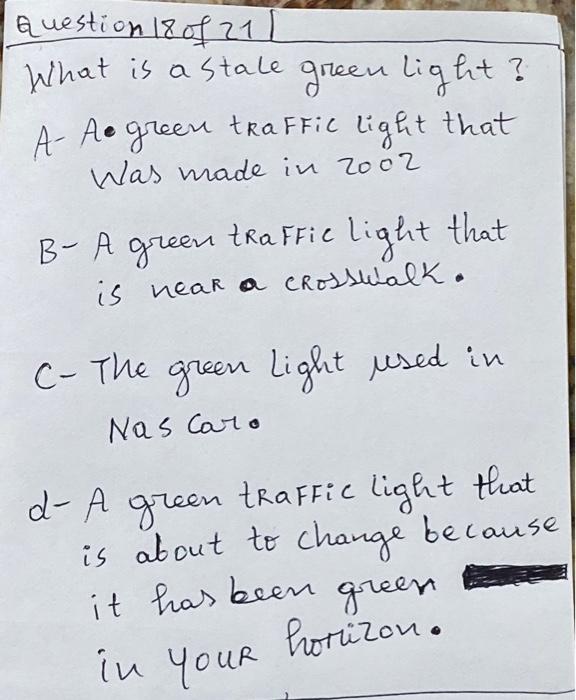 Question 18 of 21
What is a stale green light?
A- A green traffic light that
was made in 2002
B- A green traffic light that
is near a crosswalk.
C- The green light used in
Nascar.
d- A green traffic light that
is about to change because
it has been green
in your horizon.